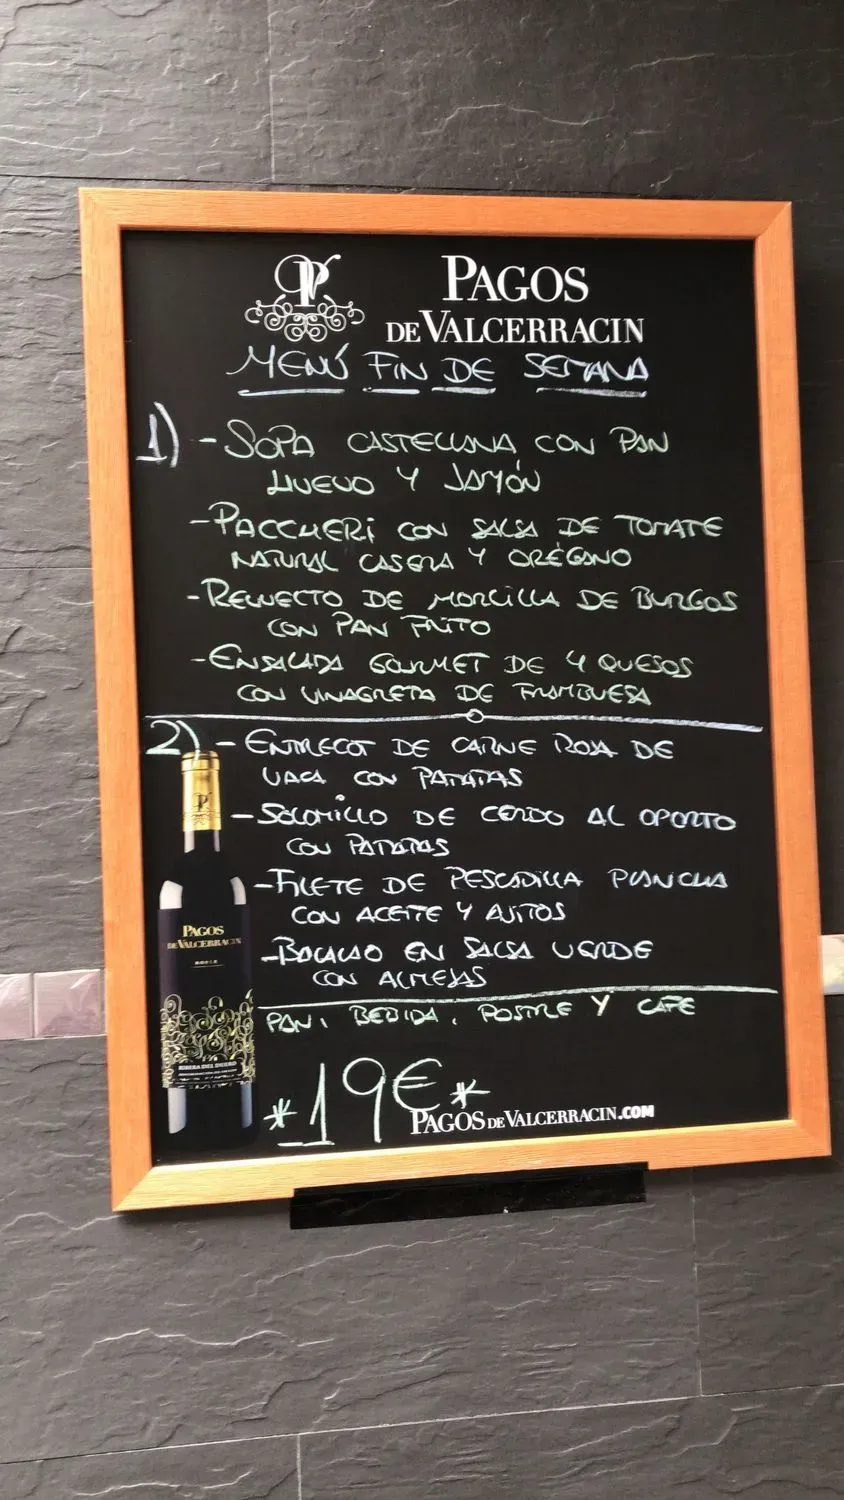 PV
PAGOS
DE VALCERRACIN
MENÚ FIN DE SEMANA
1) - SOPA CASTELLANA CON PAN
HUEVO Y JAMÓN
- PACCHERI CON SALSA DE TOMATE
NATURAL CASERA Y ORÉGANO
- REVUECTO DE MORCILLA DE BURGOS
CON PAN FRITO
- ENSALADA GOURMET DE 4 QUESOS
CON VINAGRETA DE FRAMBUESA
2) - ENTRECOT DE CARNE ROJA DE
VACA CON PATATAS
- SOLOMILLO DE CERDO AL OPORTO
CON PATATAS
- FILETE DE PESCADILLA PLANCHA
CON ACEITE Y AJITOS
- BACALAO EN SALSA VERDE
CON ALMEJAS
PAN, BEBIDA, POSTRE Y CAFE
*19€*
PAGOS DE VALCERRACIN.COM
PAGOS
DE VALCERRACIN
ROBLE
RIBERA DEL DUERO